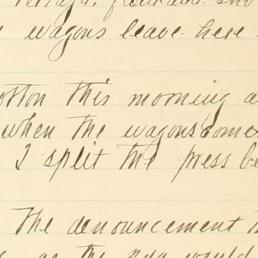 wagons leave here
otton this morning a
when the wagons come
I split the press be
The denouncement
as the would